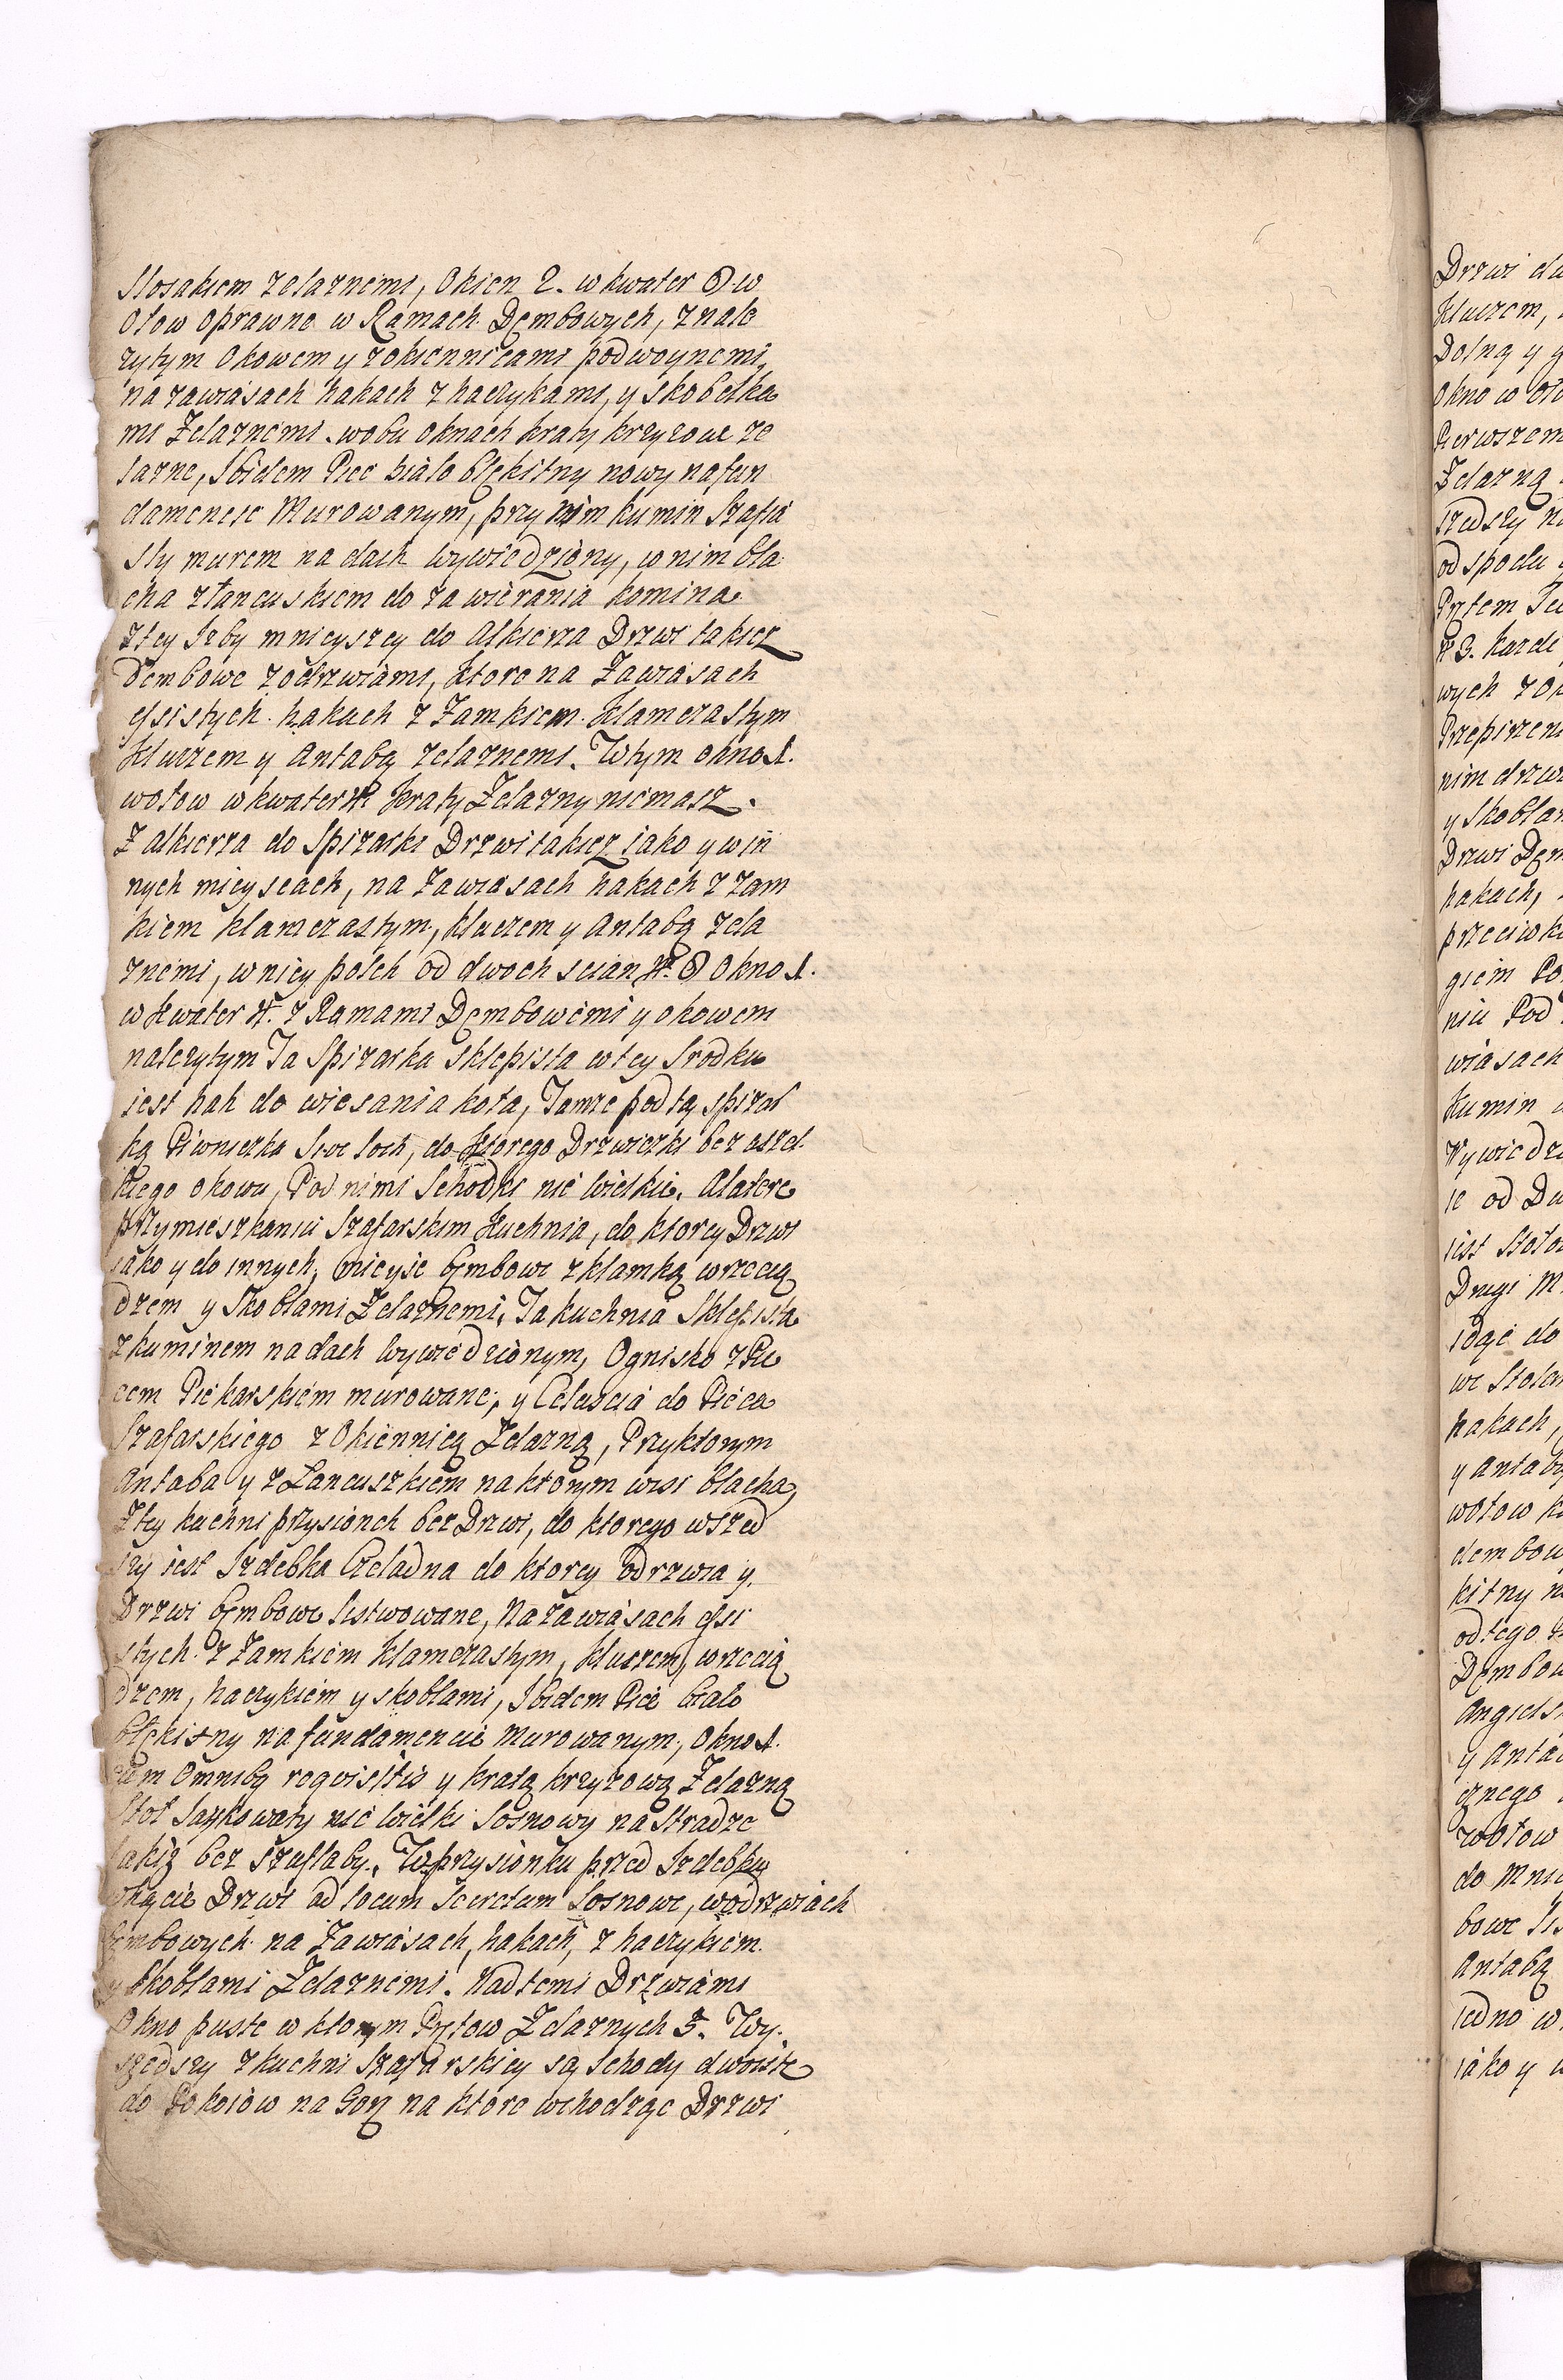 Nosakiem zelaznemi, Okien 2. w kwater 6 w
Ołow oprawne w Ramach Dębowych, z nale
zytym Okowem y z okiennicami podwoynemi,
na zawiasach hakach z haczykami, y skobelka
mi Żelaznemi. w obu oknach kraty krzyzowe ze
lazne, Ibidem Piec bialo błękitny nowy na fun
damencie Murowanym, przy nim kumin Szafia
sty murem na dach wywiedziony, w nim bla
cha z łancuskiem do zawierania komina.
z tey Izby mnieyszey do Alkierza Drzwi takież
Dembowe z odrzwiami, ktore na Zawiasach
essistych hakach z Zamkiem klamczastym
kluczem y Antabą zelaznemi. W tym okno 1.
w ołow w kwater 4. kraty Żelazny niemasz.
Z alkierza do Spizarki Drzwi takież iako y w in
nych mieyscach, na Zawiasach hakach z zam
kiem klamczastym, kluczem y Antabą zela
znemi, w niey połek od dwoch scian 4. 6 Okno 1.
w kwater 4. z Ramami Dembowemi y okowem
nalezytym Ta Spizarka sklepista w tey srodku
iest hak do wiesania kota, Tamże pod tą spizar
ką Piwniczka seu loch, do ktorego Drzwiczki bez wszel
kiego okowu, Pod nimi Schodki nie wielkie. A latere
przy mieszkaniu Szafarskim kuchnia, do ktorey Drzwi
iako y do innych, mieysc dembowe z klamką wrzecią
dzem y Skoblami Żelaznemi, Ta kuchnia Sklepista
z kuminem na dach wywiedzionym, Ognisko z Pie
cem Piekarskiem murowane, y Celuscia do Pieca
Szafarskiego z Okiennicą Żelazną, Przy ktorym
Antaba y z Łancuszkiem na ktorym wisi blacha,
Z tey kuchni przysionek bez Drzwi, do ktorego wszed
szy iest Izdebka Czeladna do ktorey odrzwia y.
Drzwi dembowe listwowane, Na zawiasach essi
stych z Zamkiem klamczastym, kluczem, wrzecią
dzem, haczykiem y skoblami, Ibidem Piec bialo
błękitny na fundamencie Murowanym, okno 1.
cum omnibq reqvisitis y kratą krzyzową Żelazną
Stoł nie wielki sosnowy na Stradze
takiż bez szuflady. W przysionku przed Izdebką
w kącie Drzwi ad locum secretum sosnowe, w odrzwiach
dembowych na Zawiasach, hakach, z haczykiem
y skoblami Żelaznemi. Nad temi Drzwiami
Okno puste w ktorym Prętow Żelaznych 3. Wy
szedszy z kuchni Szafarskiey są schody dwoiste
do Pokoiow na Gorę na ktore wchodząc Drzwi
Drzwi
kluczem,
Dolną y
okno w
Pierwszem
Żelazną
szedszy
od spodu
Przem
wych z
nim drzwi
Drzwi
hakach,
przeciwk
giem
niu Pod
wiasach
kumin
Wywiedz
ie od
iest
Drugi
idąc do
hakach,
y antab
w ołow
dembow
kitny
od tego
Dembow
y Anta
cznego
w ołow
do Mni
bowe
Antabą
iedno w
iako y